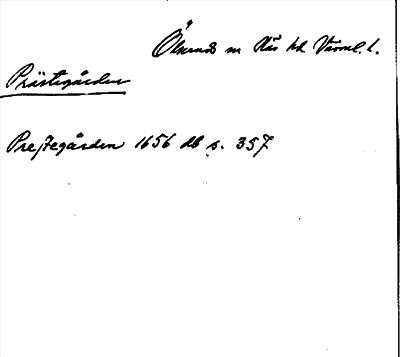 Ölseruds sn Näs hd Värml. l.
Prästegården
Prestegården 1656 db s. 357